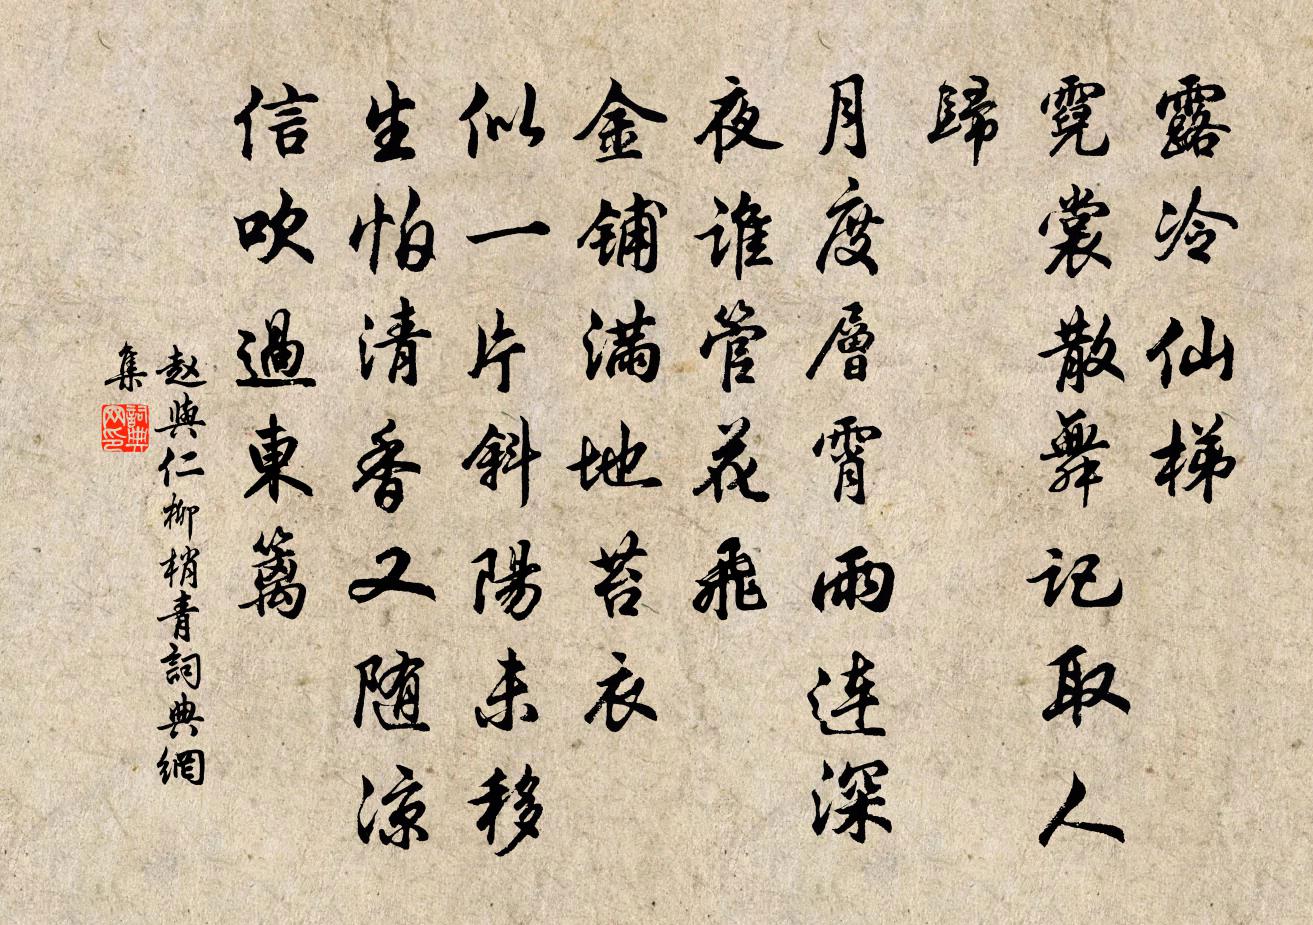 露冷仙梯
霓裳散舞記取人
歸
月度層霄雨连深
夜谁管花飛
金铺满地苔衣
似一片斜陽未移
生怕清香又随凉
信吹過東篱
赵與仁柳梢青詞典網
集
詞典网印